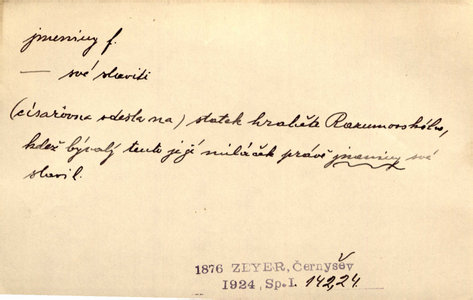 jmeniny f.
— své slaviti
(císařovna odešla na) statek hraběte Razumovského,
kdež bývalý tento její miláček právě jmeniny své
slavil.
1876 ZEYER, Černyšév
1924, Sp. I. 142,24.